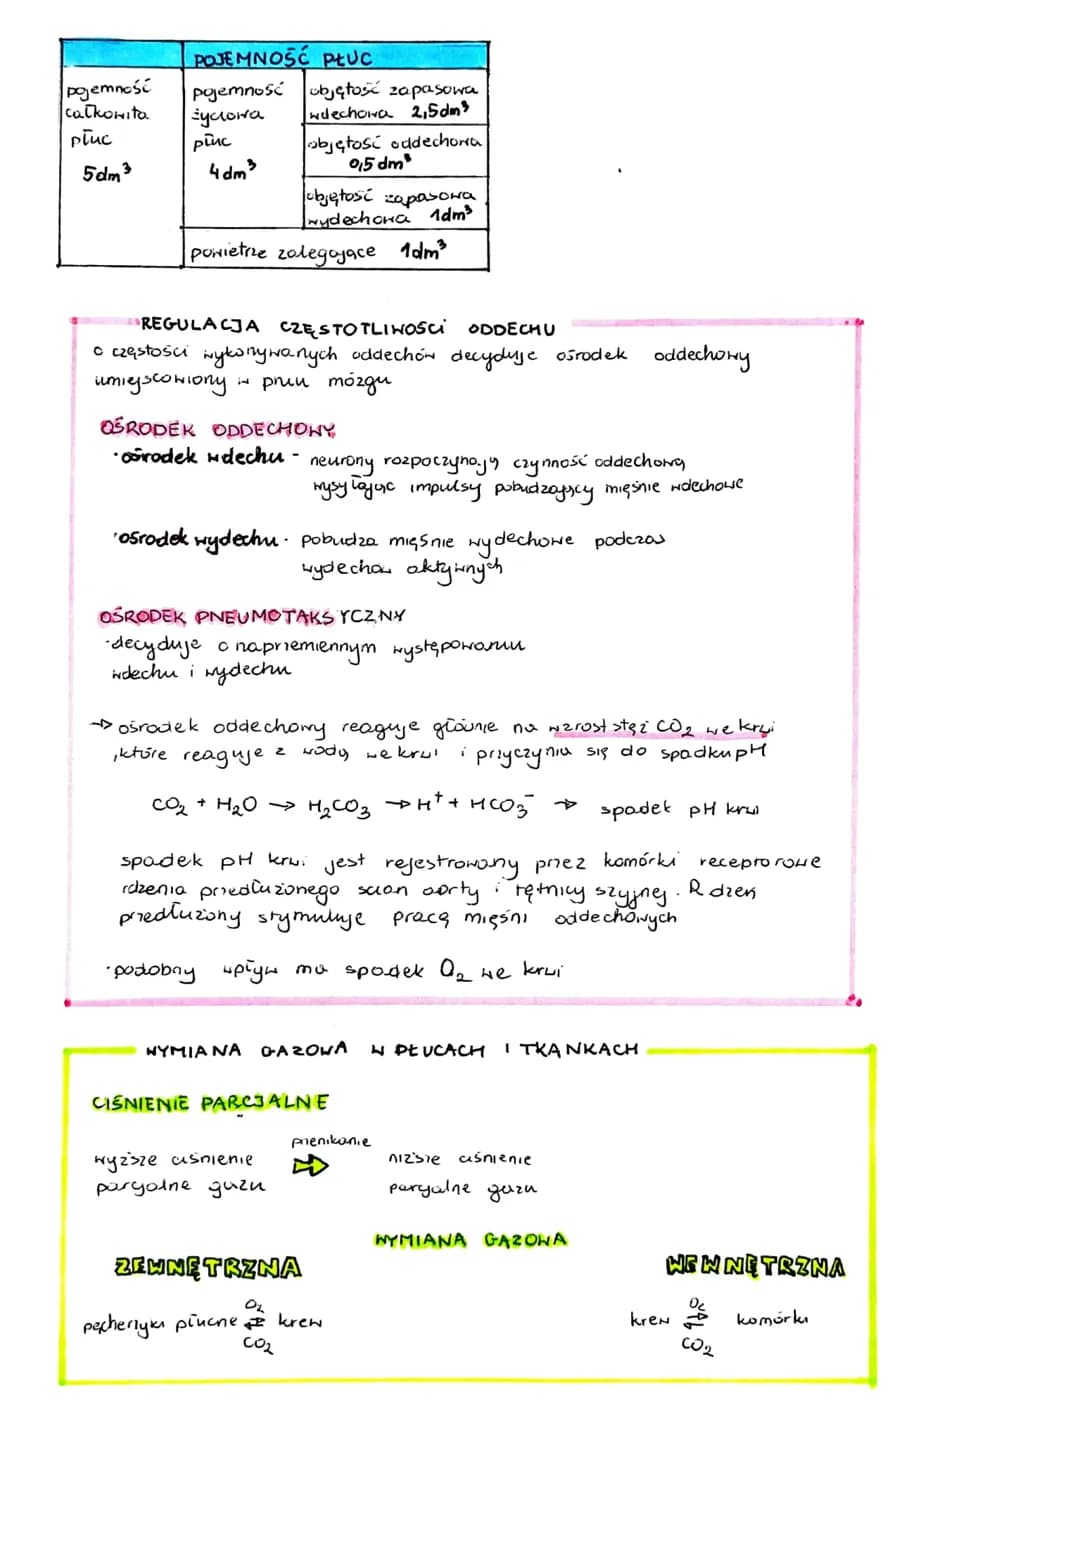 POJEMNOŚĆ PŁUC
pojemność całkowita płuc 5dm³
pojemność życiowa płuc 4dm³
objętość zapasowa
wdechowa 2,5dm³
objętość oddechowa
0,5 dm³
objętość zapasowa
wydechowa 1dm³
powietrze zalegające 1dm³
REGULACJA CZĘSTOTLIWOŚCI ODDECHU
o częstości wykonywanych oddechów decyduje ośrodek oddechowy
umiejscowiony w pniu mózgu
OŚRODEK ODDECHOWY
·ośrodek wdechu - neurony rozpoczynają czynność oddechową
wysyłając impulsy pobudzający mięśnie wdechowe
·ośrodek wydechu - pobudza mięśnie wydechowe podczas
wydechów aktywnych
OŚRODEK PNEUMOTAKSYCZNY
·decyduje o naprzemiennym występowaniu
wdechu i wydechu
→ ośrodek oddechowy reaguje głównie na wzrost stęż CO₂ we krwi
,które reaguje z wodą we krwi i przyczynia się do spadku pH
CO₂ + H₂O → H₂CO₃ → H⁺ + HCO₃⁻ → spadek pH krwi
spadek pH krwi jest rejestrowany przez komórki receprorowe
rdzenia przedłużonego ścian aorty i tętnicy szyjnej. Rdzeń
przedłużony stymuluje pracę mięśni oddechowych
·podobny wpływ ma spadek O₂ we krwi
WYMIANA GAZOWA W PŁUCACH I TKANKACH
CIŚNIENIE PARCJALNE
przenikanie
wyższe ciśnienie → niższe ciśnienie
parcjalne gazu parcjalne gazu
WYMIANA GAZOWA
ZEWNĘTRZNA WEWNĘTRZNA
O₂ O₂
pęcherzyki płucne ⇄ krew krew ⇄ komórki
CO₂ CO₂